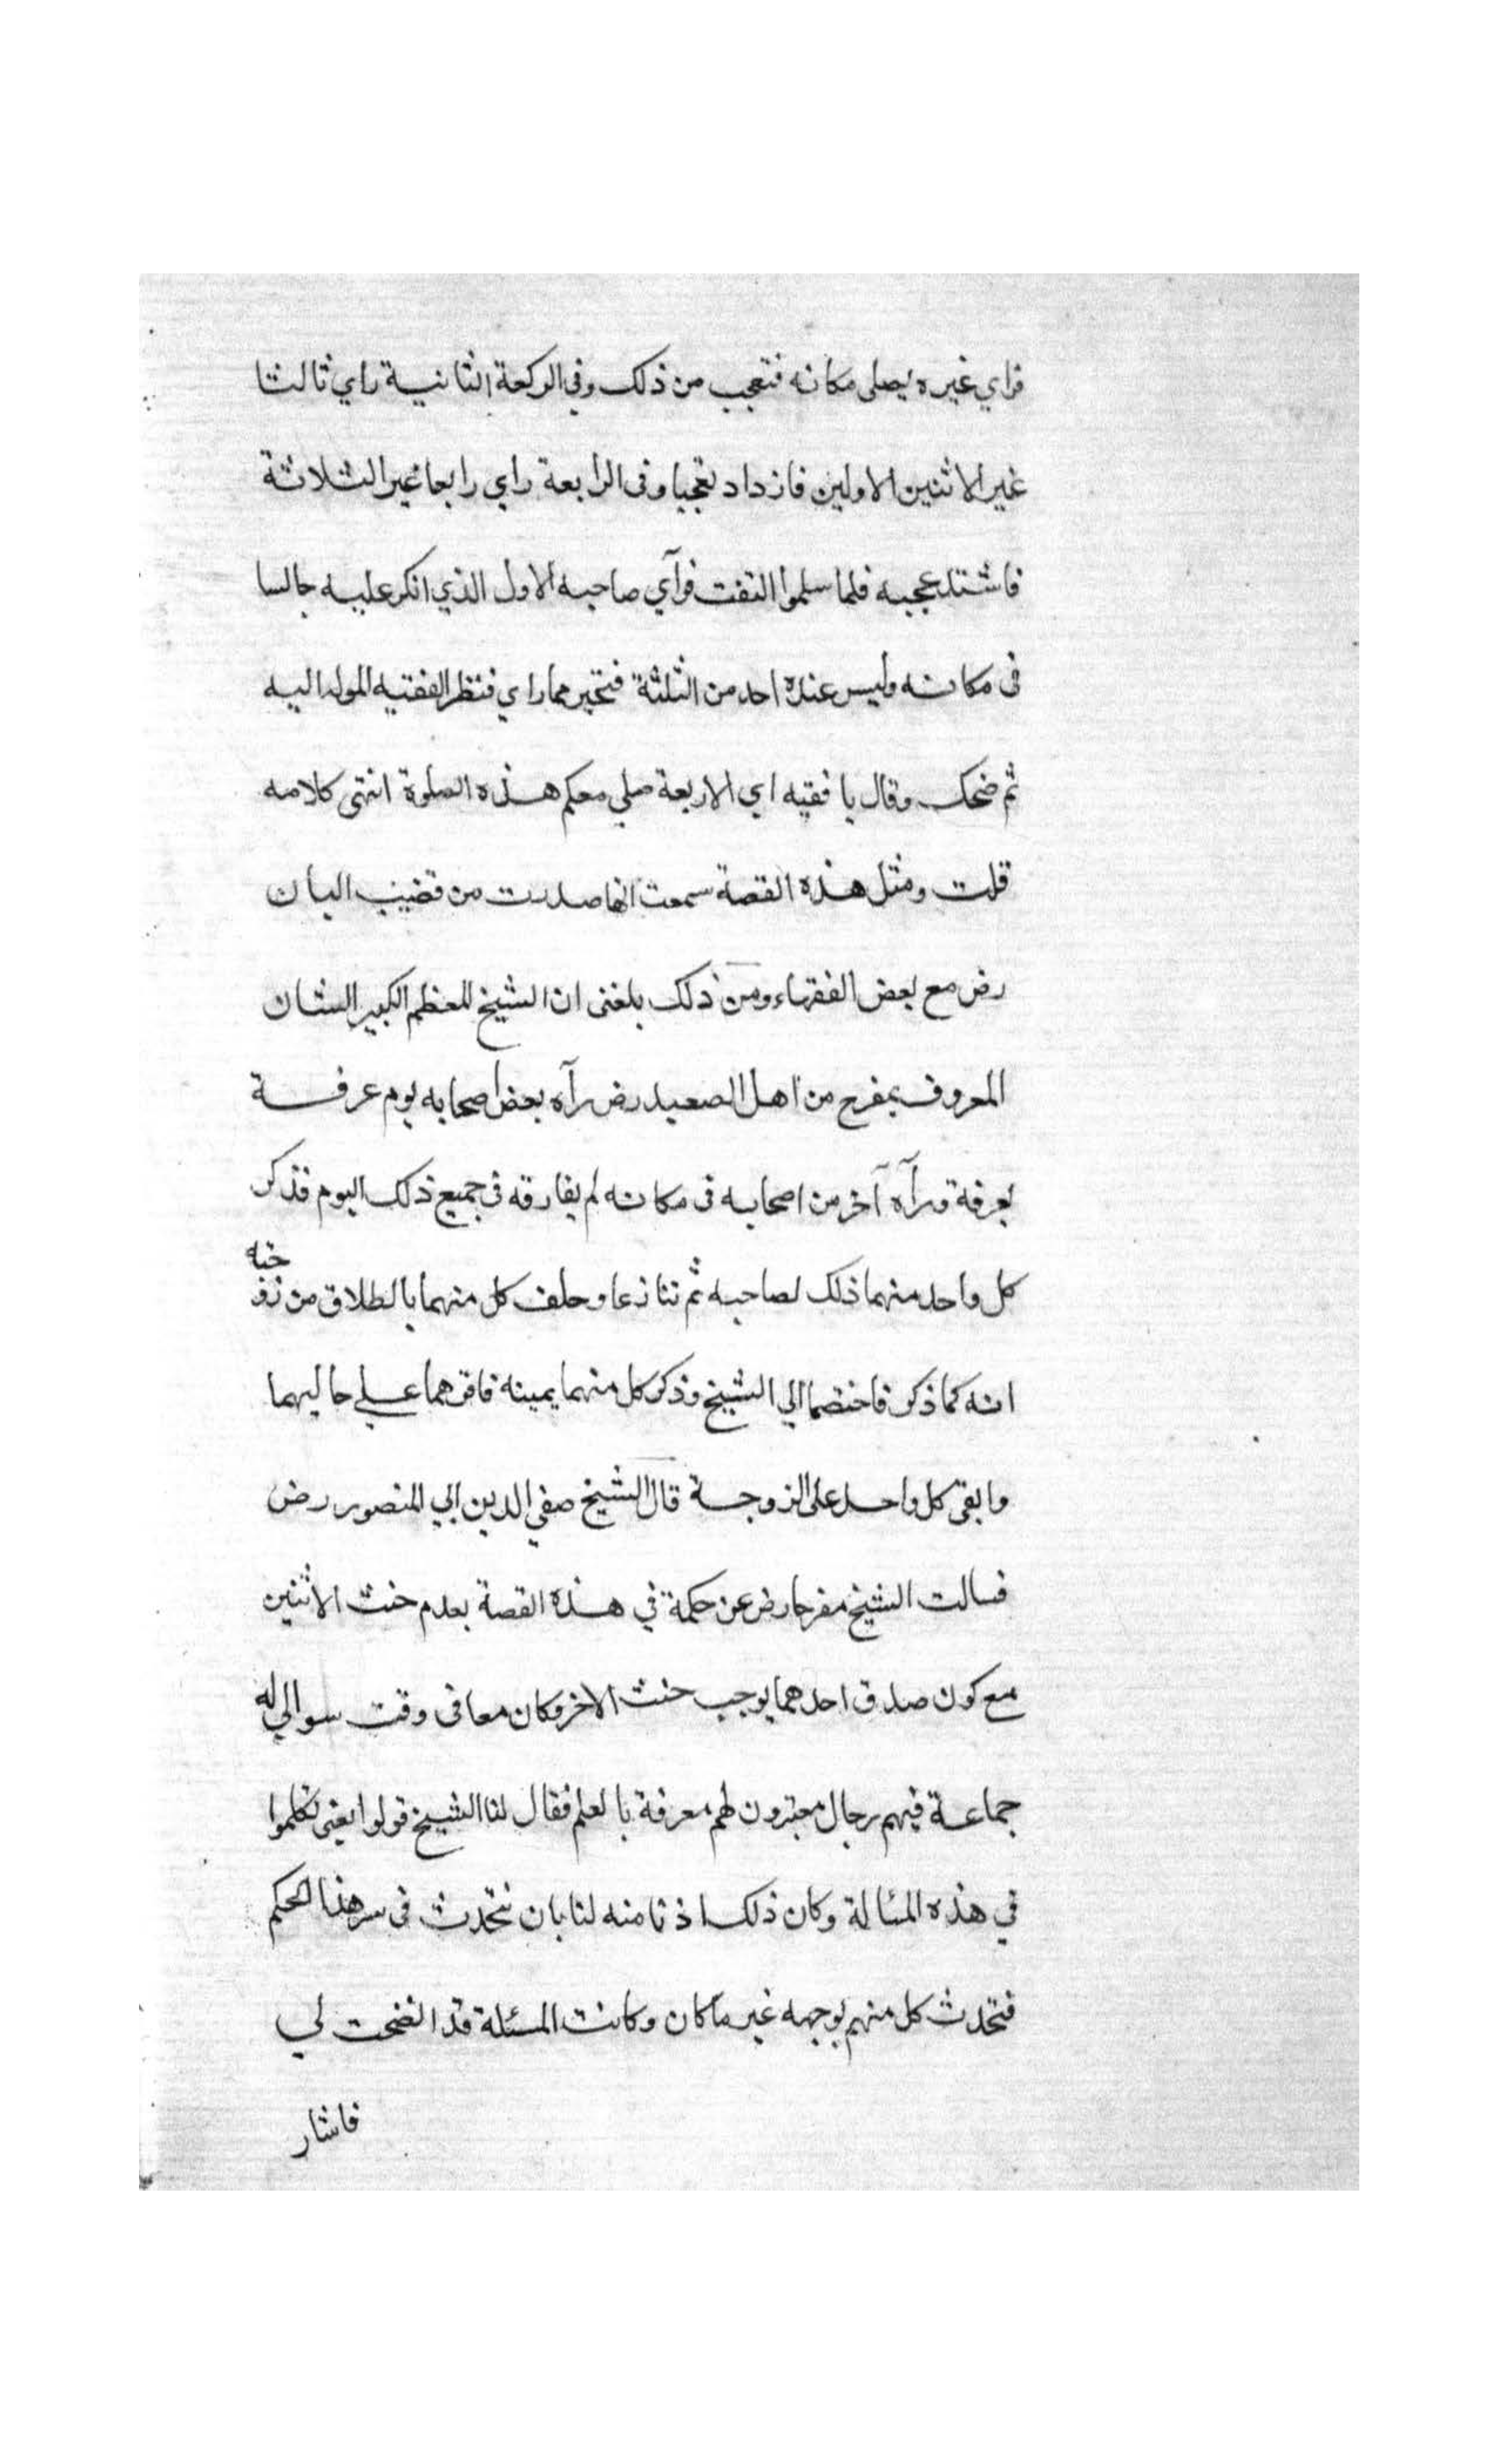 فراي غيره يصلى مكانه فتعجب من ذلك وفي الركعة الثانية راي ثالثا
غير الاثنين الاولين فازداد تعجبا وفى الرابعة راي رابعا غير الثلاثة
فاشتد عجبه فلما سلموا التفت فرآي صاحبه الاول الذي انكر عليه جالسا
فى مكانه وليس عنده احد من الثلثة فتحير مما راي فنظر الفقيه المولد اليه
ثم ضحك وقال يا فقيه اي الاربعة صلي معكم هذه الصلوة انتهى كلامه
قلت ومثل هذه القصة سمعت انها صدرت من قضيب البان
رض مع بعض الفقهاء ومن ذلك بلغنى ان الشيخ المعظم الكبير الشان
المعروف بمفرح من اهل الصعيد رض رآه بعض اصحابه يوم عرفة
بعرفة ورآه آخر من اصحابه فى مكانه لم يفارقه في جميع ذلك اليوم فذكر
كل واحد منهما ذلك لصاحبه ثم تنازعا وحلف كل منهما بالطلاق من زو
جته
انه كما ذكر فاختصما الي الشيخ وذكر كل منهما يمينه فاقرهما علي حاليهما
وابقى كل واحد على الزوجة قال الشيخ صفي الدين ابي المنصور رض
فسالت الشيخ مفرجا رض عن حكمة في هذه القصة بعدم حنث الاثنين
مع كون صدق احدهما يوجب حنث الاخر وكان معا فى وقت سوالي له
جماعة فيهم رجال معتبرون لهم معرفة بالعلم فقال لنا الشيخ قولوا يعنى تكلموا
في هذه المسالة وكان ذلك اذنا منه لنا بان نتحدث فى سر هذا الحكم
فتحدث كل منهم بوجهه غير ما كان وكانت المسئلة قد اتضحت لي
فاشار